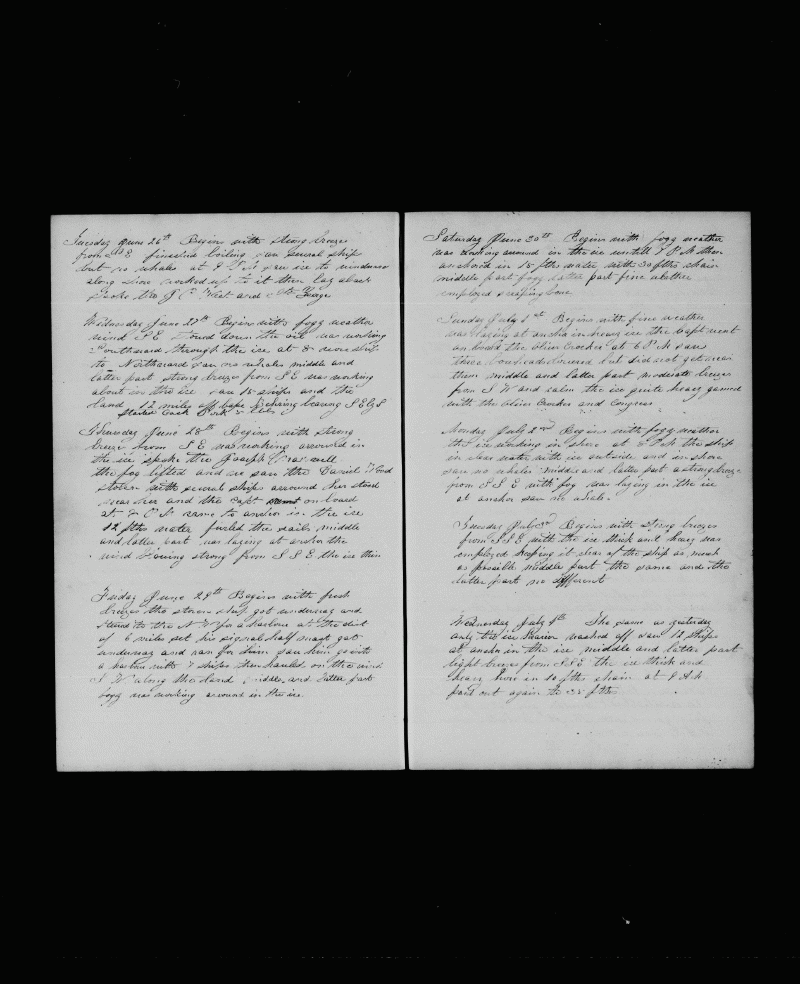 Tuesday June 26th Begins with strong breeze
from S E finished boiling saw several ship
but no whales at 8 P M saw ice to windward
along shore worked up to it then lay aback
Spoke the J D West and
Wednesday June 27th Begins with foggy weather
wind S E Stowed down the oil was working
Southward through the ice at 8 saw ship
to Northward saw no whales middle and
latter part strong breeze from S E was working
about in the ice saw 15 ships and the
land 12 miles off Cape bearing S E by S
Started back
Thursday June 28th Begins with strong
breeze from S E was working arround in
the ice spoke the Joseph Maxwell
the fog lifted and we saw the Daniel Wood
Stoten with several ships arround her stood
near her and the Capt went on board
at 7 P M came to anchor in the ice
12 fths water furled the sails middle
and latter part was laying at anchor the
wind blowing strong from S S E the ice thin
Friday June 29th Begins with fresh
breeze the ship got underway and
stood to the N W for a harbour at the dist
of 6 miles set his signal half mast got
underway and ran for him saw him go into
a harbor with 7 ships then hauled on the wind
S W along the land middle and latter part
foggy was working around in the ice
Saturday June 30th Begins with foggy weather
was working around in the ice untill 7 P M then
anchored in 15 fths water with 30 fths chain
middle part foggy latter part fine weather
employed scraping bone
Sunday July 1st Begins with fine weather
was laying at anchor in heavy ice the Capt went
on board the Oliver Crocker at 6 P M saw
three bowheads lowered but did not get near
them middle and latter part moderate breeze
from S W and calm the ice quite heavy gamed
with the Oliver Crocker and Congress
Monday July 2nd Begins with foggy weather
the ice working in shore at 8 P M the ship
in clear water with ice outside and in shore
saw no whales middle and latter part a strong breeze
from S S E with fog was laying in the ice
at anchor saw no whales
Tuesday July 3rd Begins with strong breezes
from S S E with the ice thick and heavy was
employed keeping it clear of the ship as much
as possible middle part the same and the
latter part no different
Wednesday July 4th The same as yesterday
only the ice washed off saw 12 ships
at anchor in the ice middle and latter part
light breeze from S S E the ice thick and
heavy hove in 10 fths chain at 8 A M
paid out again to 35 fths